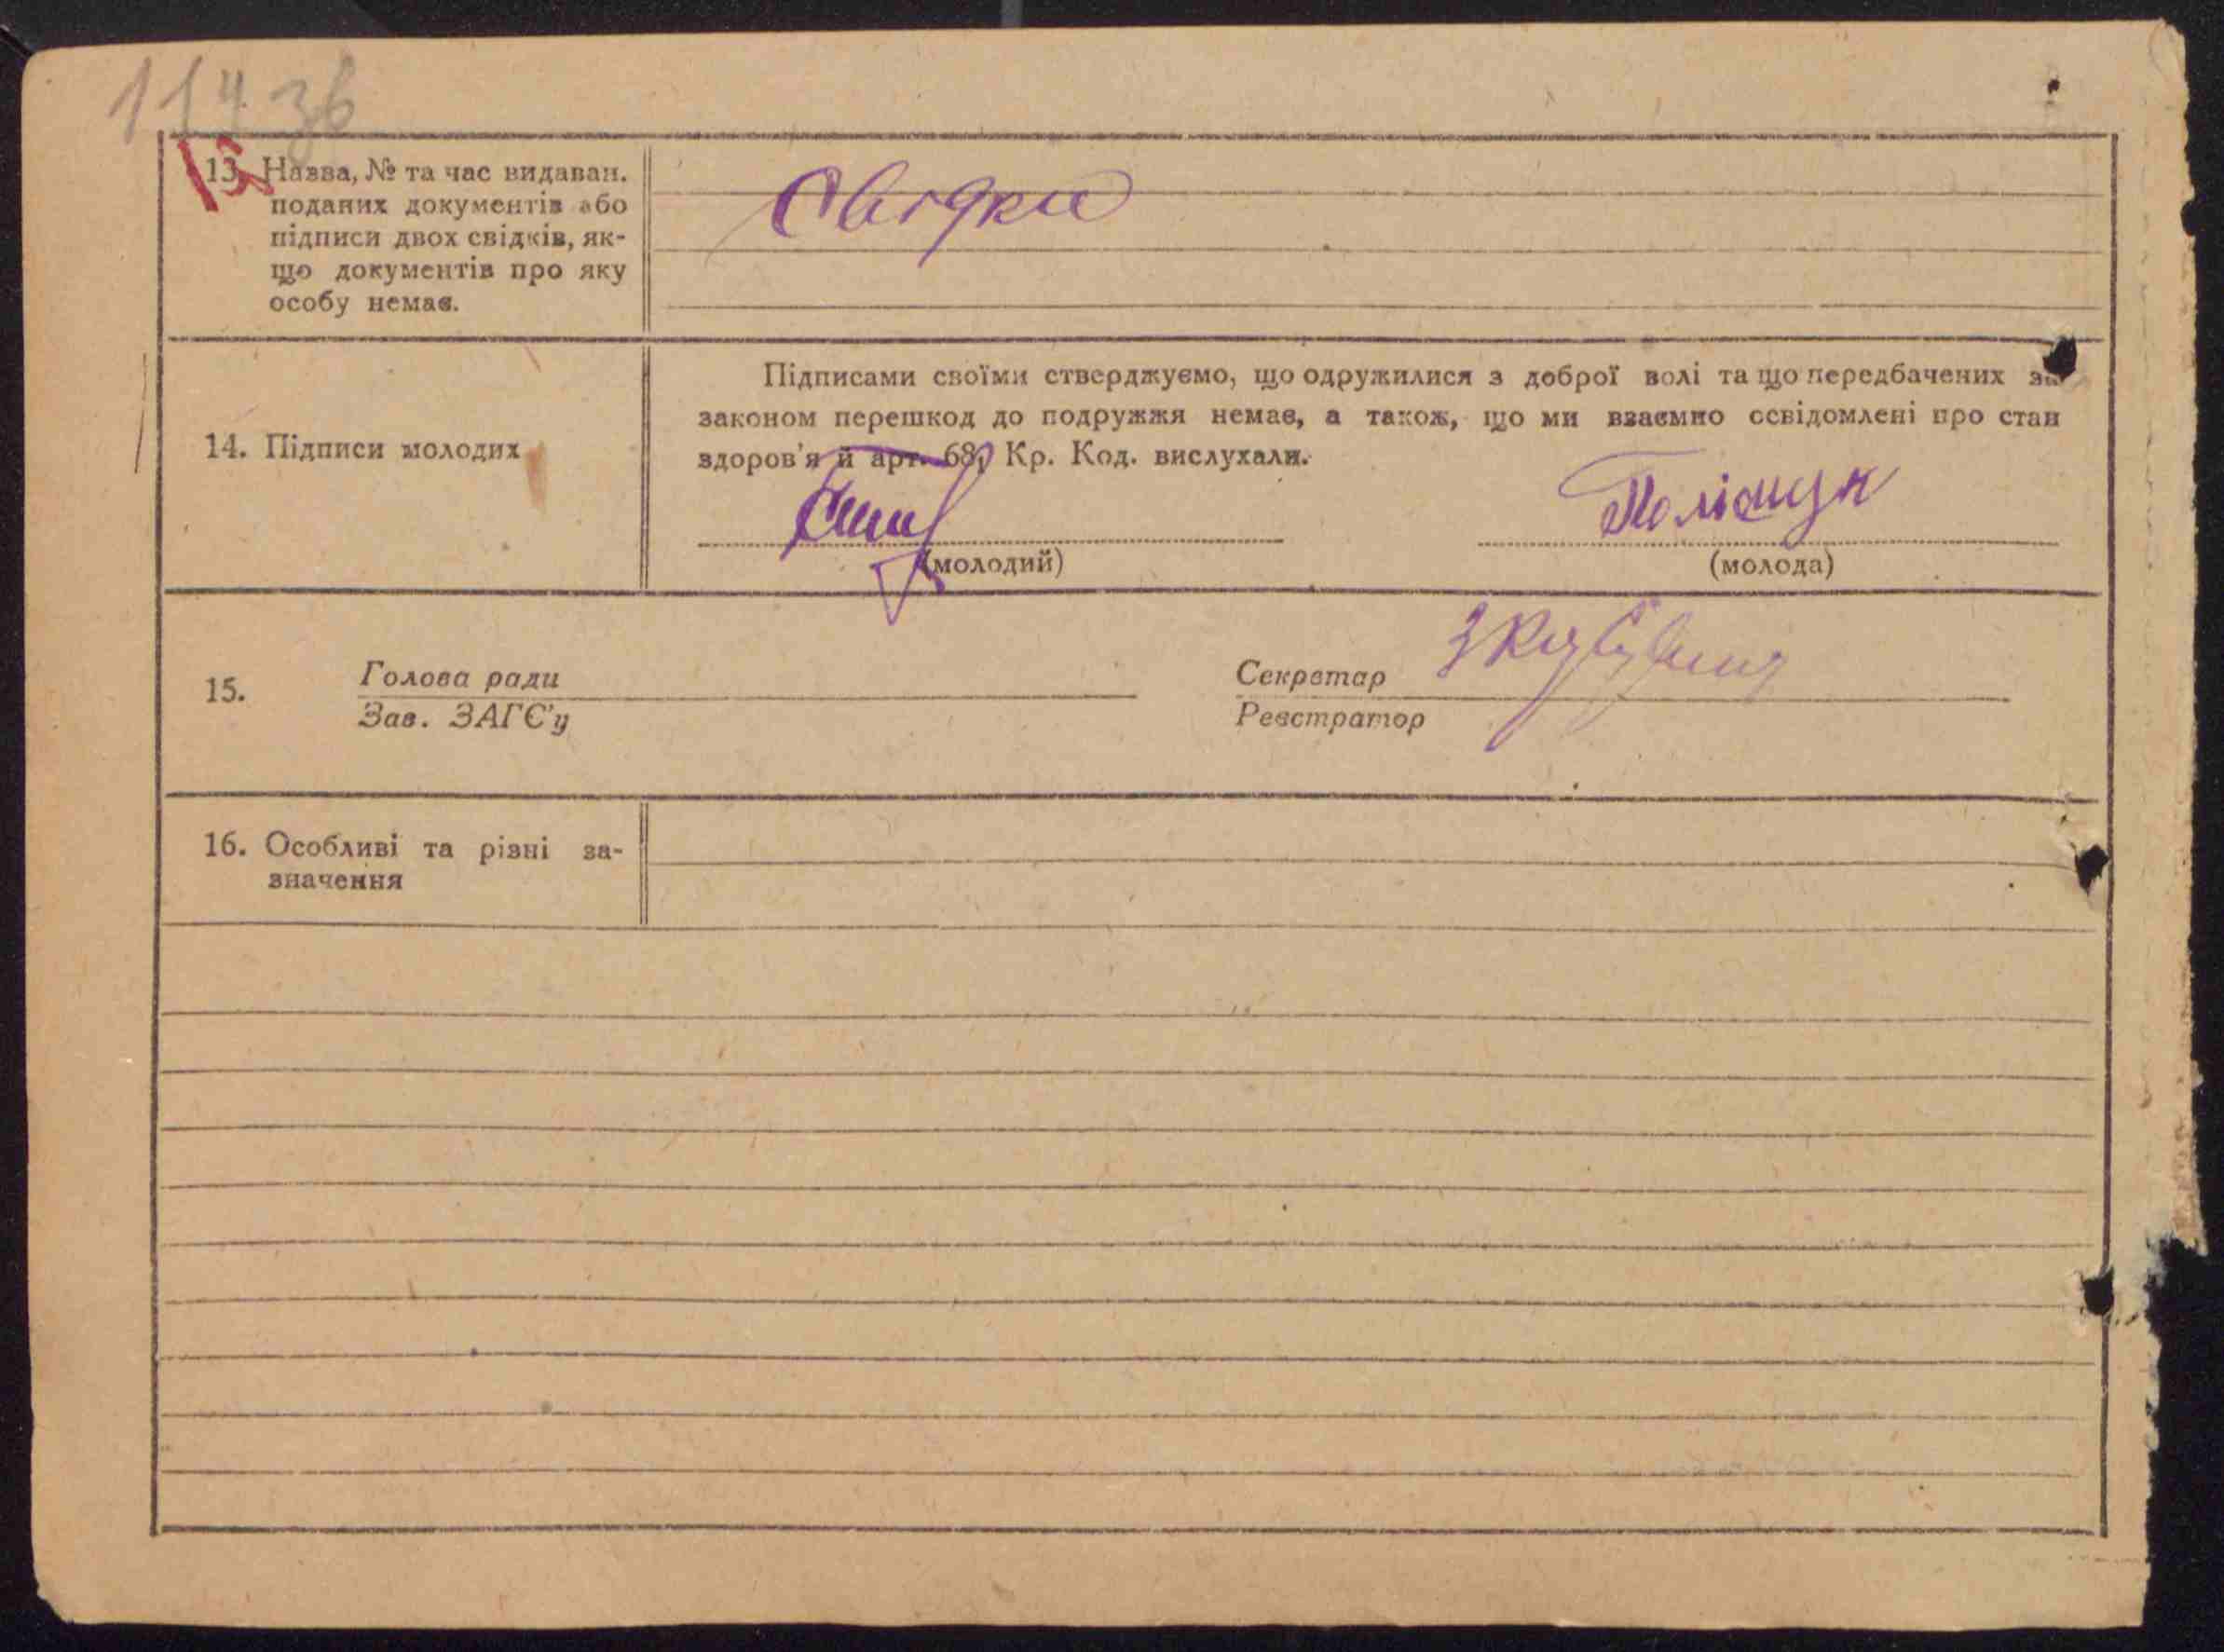 114 зв
13. Назва, № та час видаван.
поданих документів або
підписи двох свідків, як-
що документів про яку
особу немає.
Свідки
14. Підписи молодих
Підписами своїми стверджуємо, що одружилися з доброї волі та що передбачених за
законом перешкод до подружжя немає, а також, що ми взаємно освідомлені про стан
здоров'я й арт. 68, Кр. Код. вислухали.
Поліщук
(молодий) (молода)
15. Голова ради Секретар
Зав. ЗАГС'у Реєстратор
16. Особливі та різні за-
значення